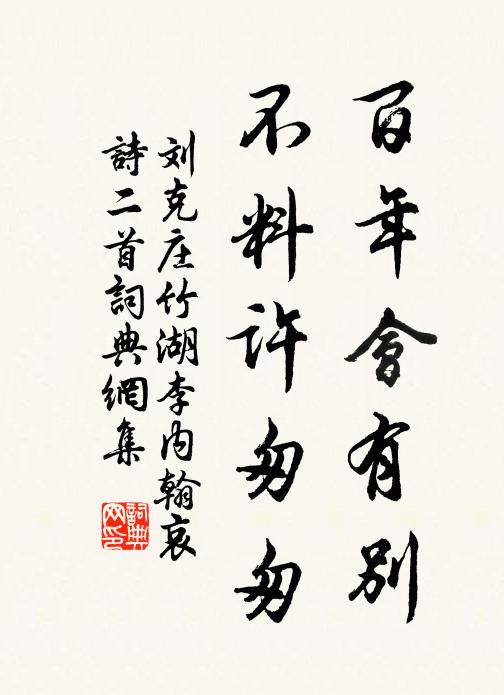 百年會有別
不料許匆匆
刘克庄竹湖李内翰哀
詩二首詞典網集
詞典
网印